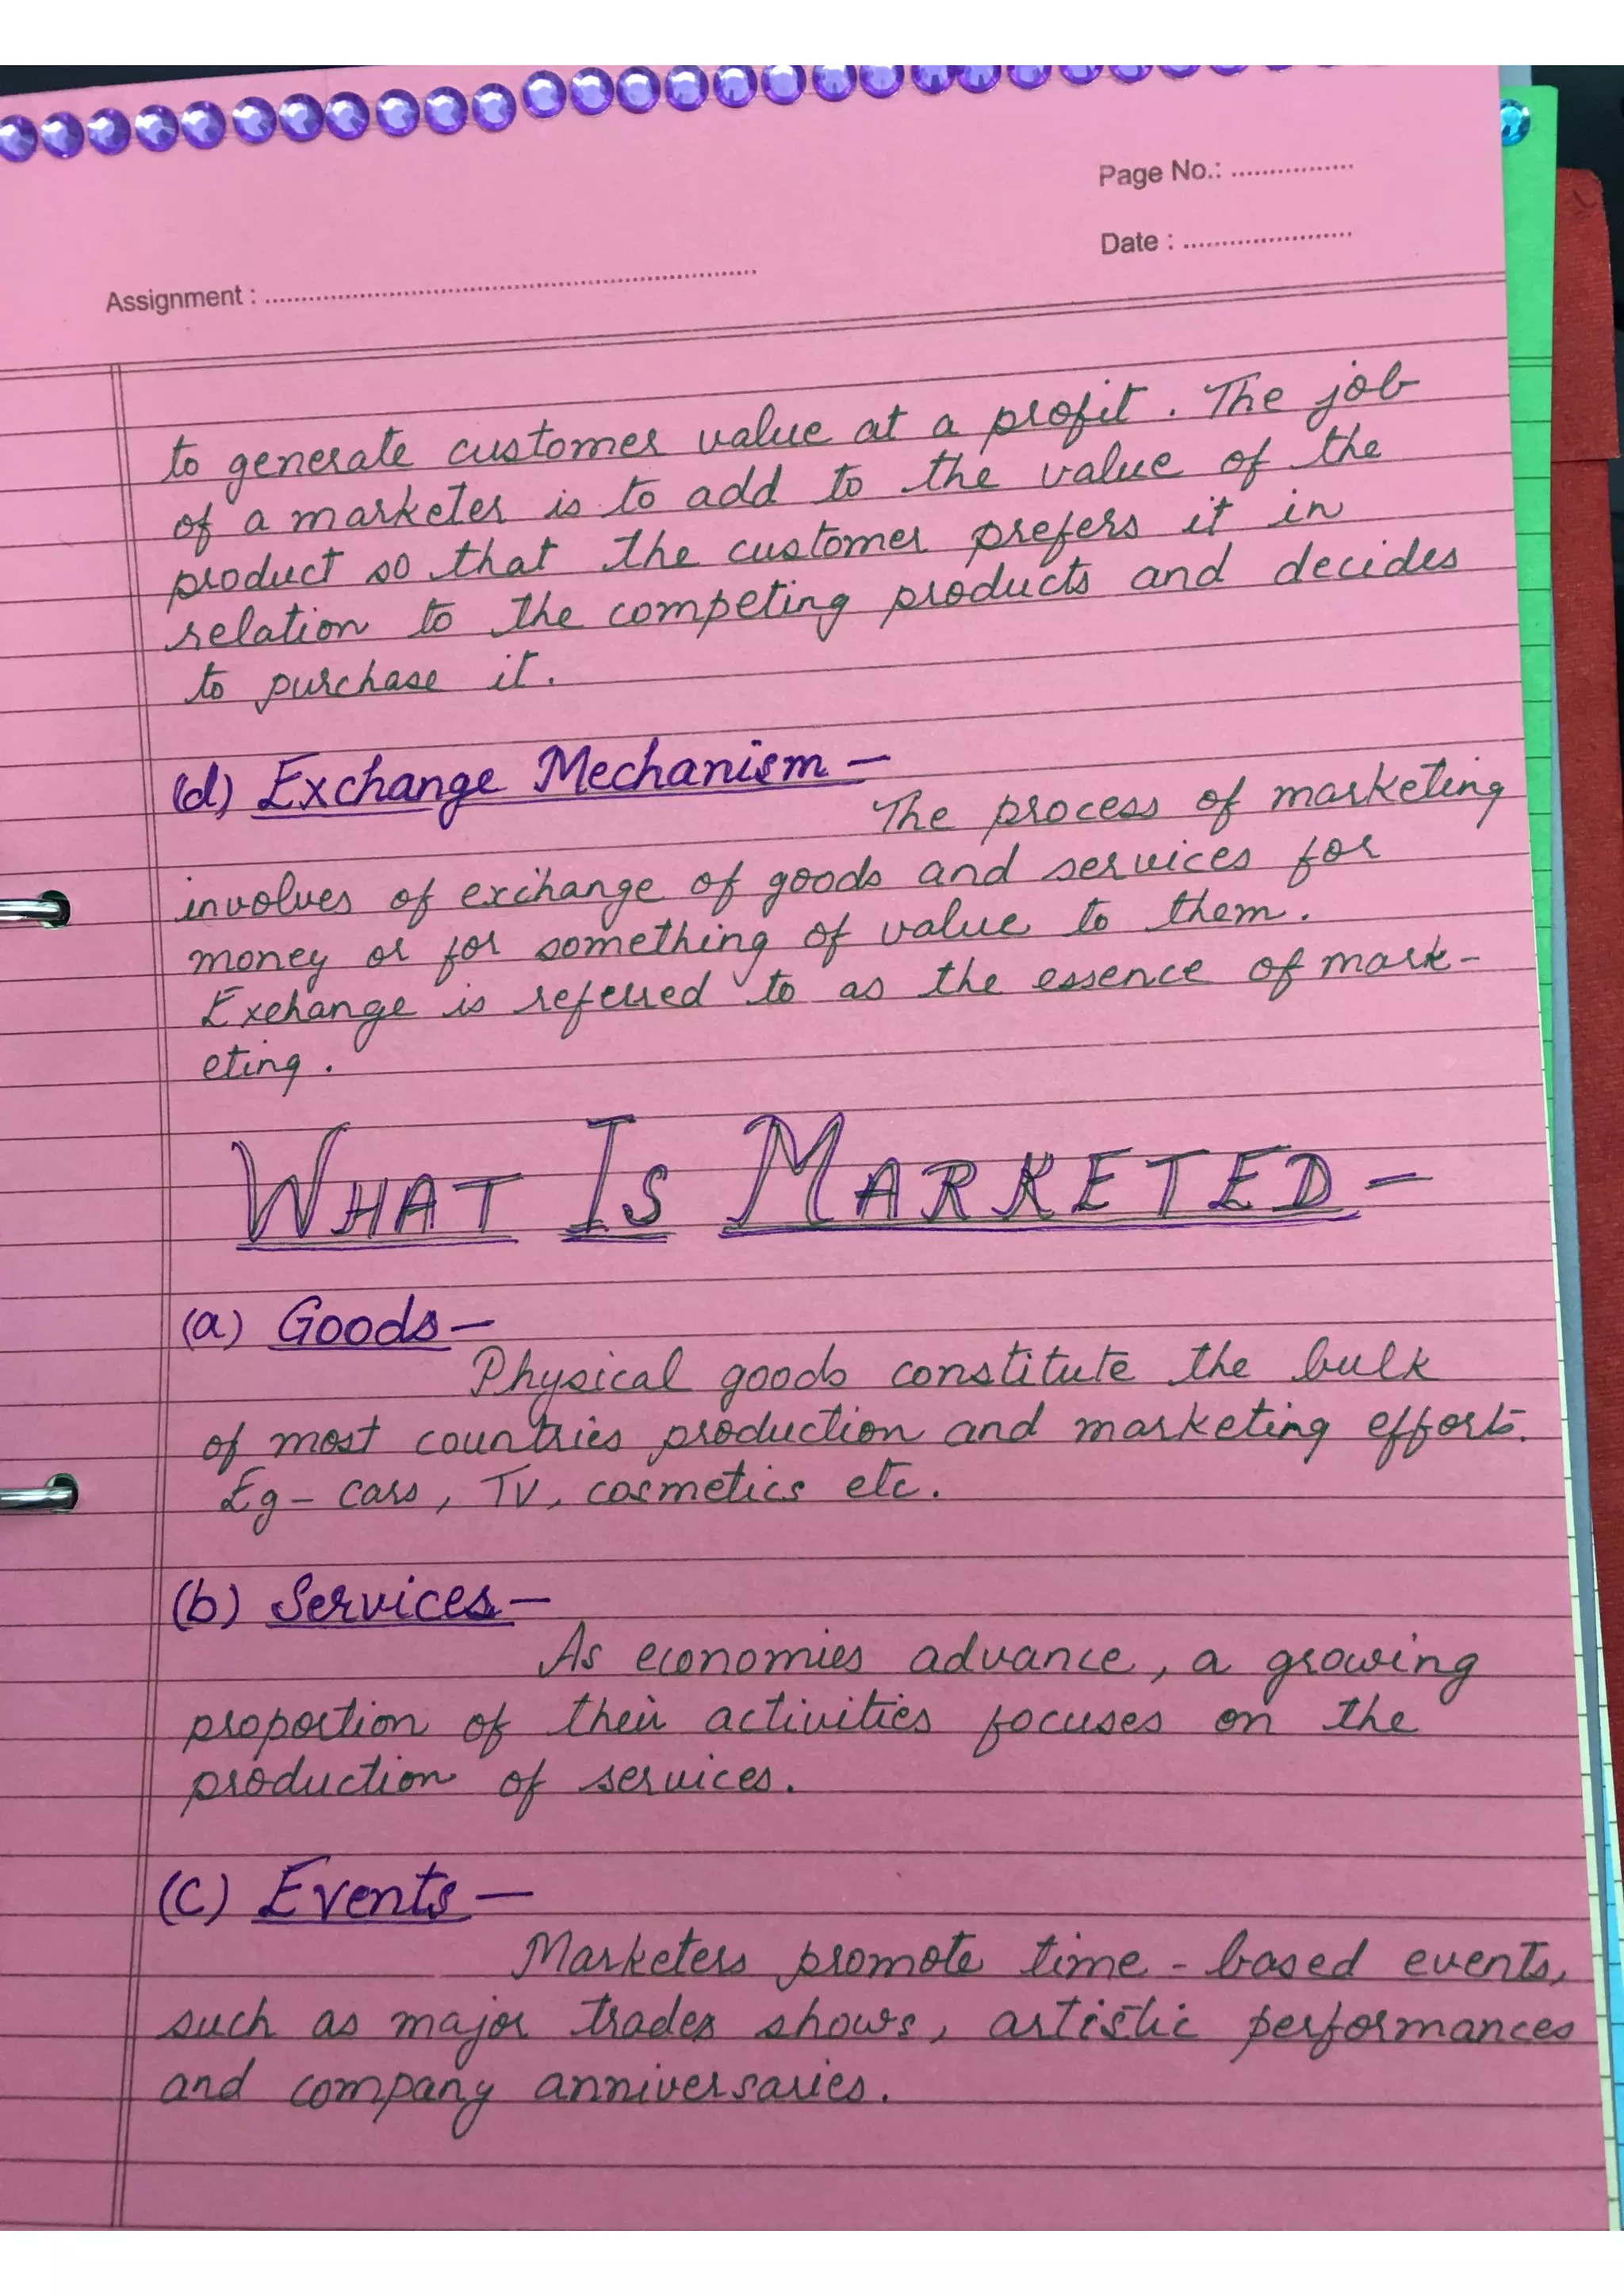 Page No.: ................
Date : .......................
Assignment : ................................................................
to generate customer value at a profit. The job
of a marketer is to add to the value of the
product so that the customer prefers it in
relation to the competing products and decides
to purchase it.
(d) Exchange Mechanism –
The process of marketing
involves of exchange of goods and services for
money or for something of value to them.
Exchange is referred to as the essence of mark-
eting.
WHAT IS MARKETED –
(a) Goods –
Physical goods constitute the bulk
of most countries production and marketing efforts.
Eg – cars, TV, cosmetics etc.
(b) Services –
As economies advance, a growing
proportion of their activities focuses on the
production of services.
(c) Events –
Marketers promote time - based events,
such as major trades shows, artistic performances
and company anniversaries.